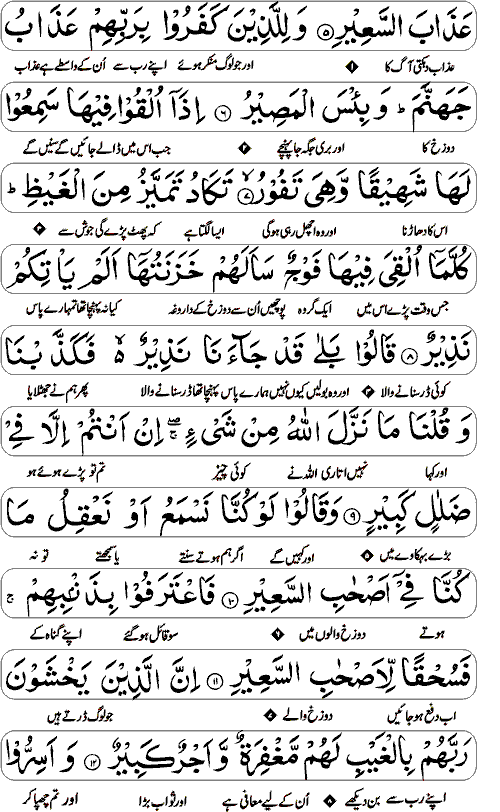 عَذَابَ السَّعِيْرِ ۵ وَ لِلَّذِيْنَ كَفَرُوْا بِرَبِّهِمْ عَذَابُ
عذاب دہکتی آگ کا ۱ اور جو لوگ منکر ہوئے اپنے رب سے اُن کے واسطے ہے عذاب
جَهَنَّمَ ؕ وَ بِئْسَ الْمَصِيْرُ ۶ اِذَاۤ اُلْقُوْا فِيْهَا سَمِعُوْا
دوزخ کا اور بری جگہ جا پہنچے ۲ جب اس میں ڈالے جائیں گے سنیں گے
لَهَا شَهِيْقًا وَّ هِيَ تَفُوْرُ ۷ۙ تَكَادُ تَمَيَّزُ مِنَ الْغَيْظِ ؕ
اس کا دھاڑنا اور وہ اچھل رہی ہوگی ایسا لگتا ہے کہ پھٹ پڑے گی جوش سے ۳
كُلَّمَاۤ اُلْقِيَ فِيْهَا فَوْجٌ سَاَلَهُمْ خَزَنَتُهَاۤ اَلَمْ يَاْتِكُمْ
جس وقت پڑے اس میں ایک گروہ پوچھیں اُن سے دوزخ کے داروغہ کیا نہ پہنچا تھا تمہارے پاس
نَذِيْرٌ ۸ قَالُوْا بَلٰى قَدْ جَآءَنَا نَذِيْرٌ ۥۙ فَكَذَّبْنَا
کوئی ڈر سنانے والا ۴ اور وہ بولیں کیوں نہیں ہمارے پاس پہنچا تھا ڈر سنانے والا پھر ہم نے جھٹلایا
وَ قُلْنَا مَا نَزَّلَ اللّٰهُ مِنْ شَيْءٍ ۖۚ اِنْ اَنْتُمْ اِلَّا فِيْ
اور کہا نہیں اتاری اللہ نے کوئی چیز تم تو پڑے ہوئے ہو
ضَلٰلٍ كَبِيْرٍ ۹ وَ قَالُوْا لَوْ كُنَّا نَسْمَعُ اَوْ نَعْقِلُ مَا
بڑے بہکاوے میں ۵ اور کہیں گے اگر ہم ہوتے سنتے یا سمجھتے تو نہ
كُنَّا فِيْۤ اَصْحٰبِ السَّعِيْرِ ۱۰ فَاعْتَرَفُوْا بِذَنْۢبِهِمْ ۚ
ہوتے دوزخ والوں میں ۶ سو قائل ہو گئے اپنے گناہ کے
فَسُحْقًا لِّاَصْحٰبِ السَّعِيْرِ ۱۱ اِنَّ الَّذِيْنَ يَخْشَوْنَ
اب دفع ہو جائیں دوزخ والے ۷ جو لوگ ڈرتے ہیں
رَبَّهُمْ بِالْغَيْبِ لَهُمْ مَّغْفِرَةٌ وَّ اَجْرٌ كَبِيْرٌ ۱۲ وَ اَسِرُّوْا
اپنے رب سے بن دیکھے ۸ اُن کے لیے معافی ہے اور ثواب بڑا اور تم چھپا کر